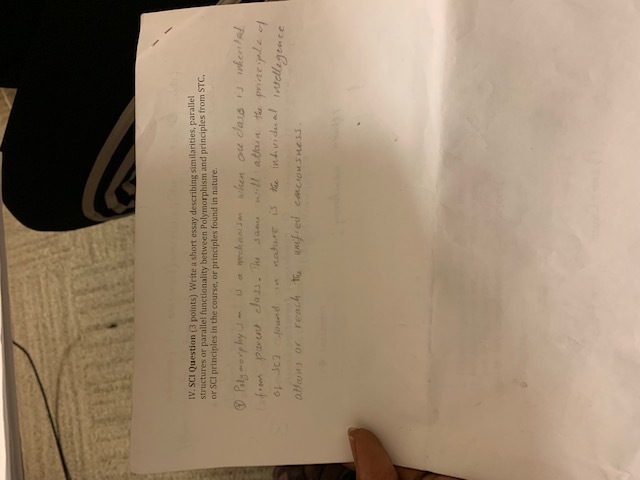 IV. SCI Question (3 points) Write a short essay describing similarities, parallel
structures or parallel functionality between Polymorphism and principles from STC,
or SCI principles in the course, or principles found in nature.
Polymorphysim is a mechanism when one class is inherited
from parent class. The same will attain the principle of
of SCI found in nature is the individual intellegence
attains or reach the unified conciousness.